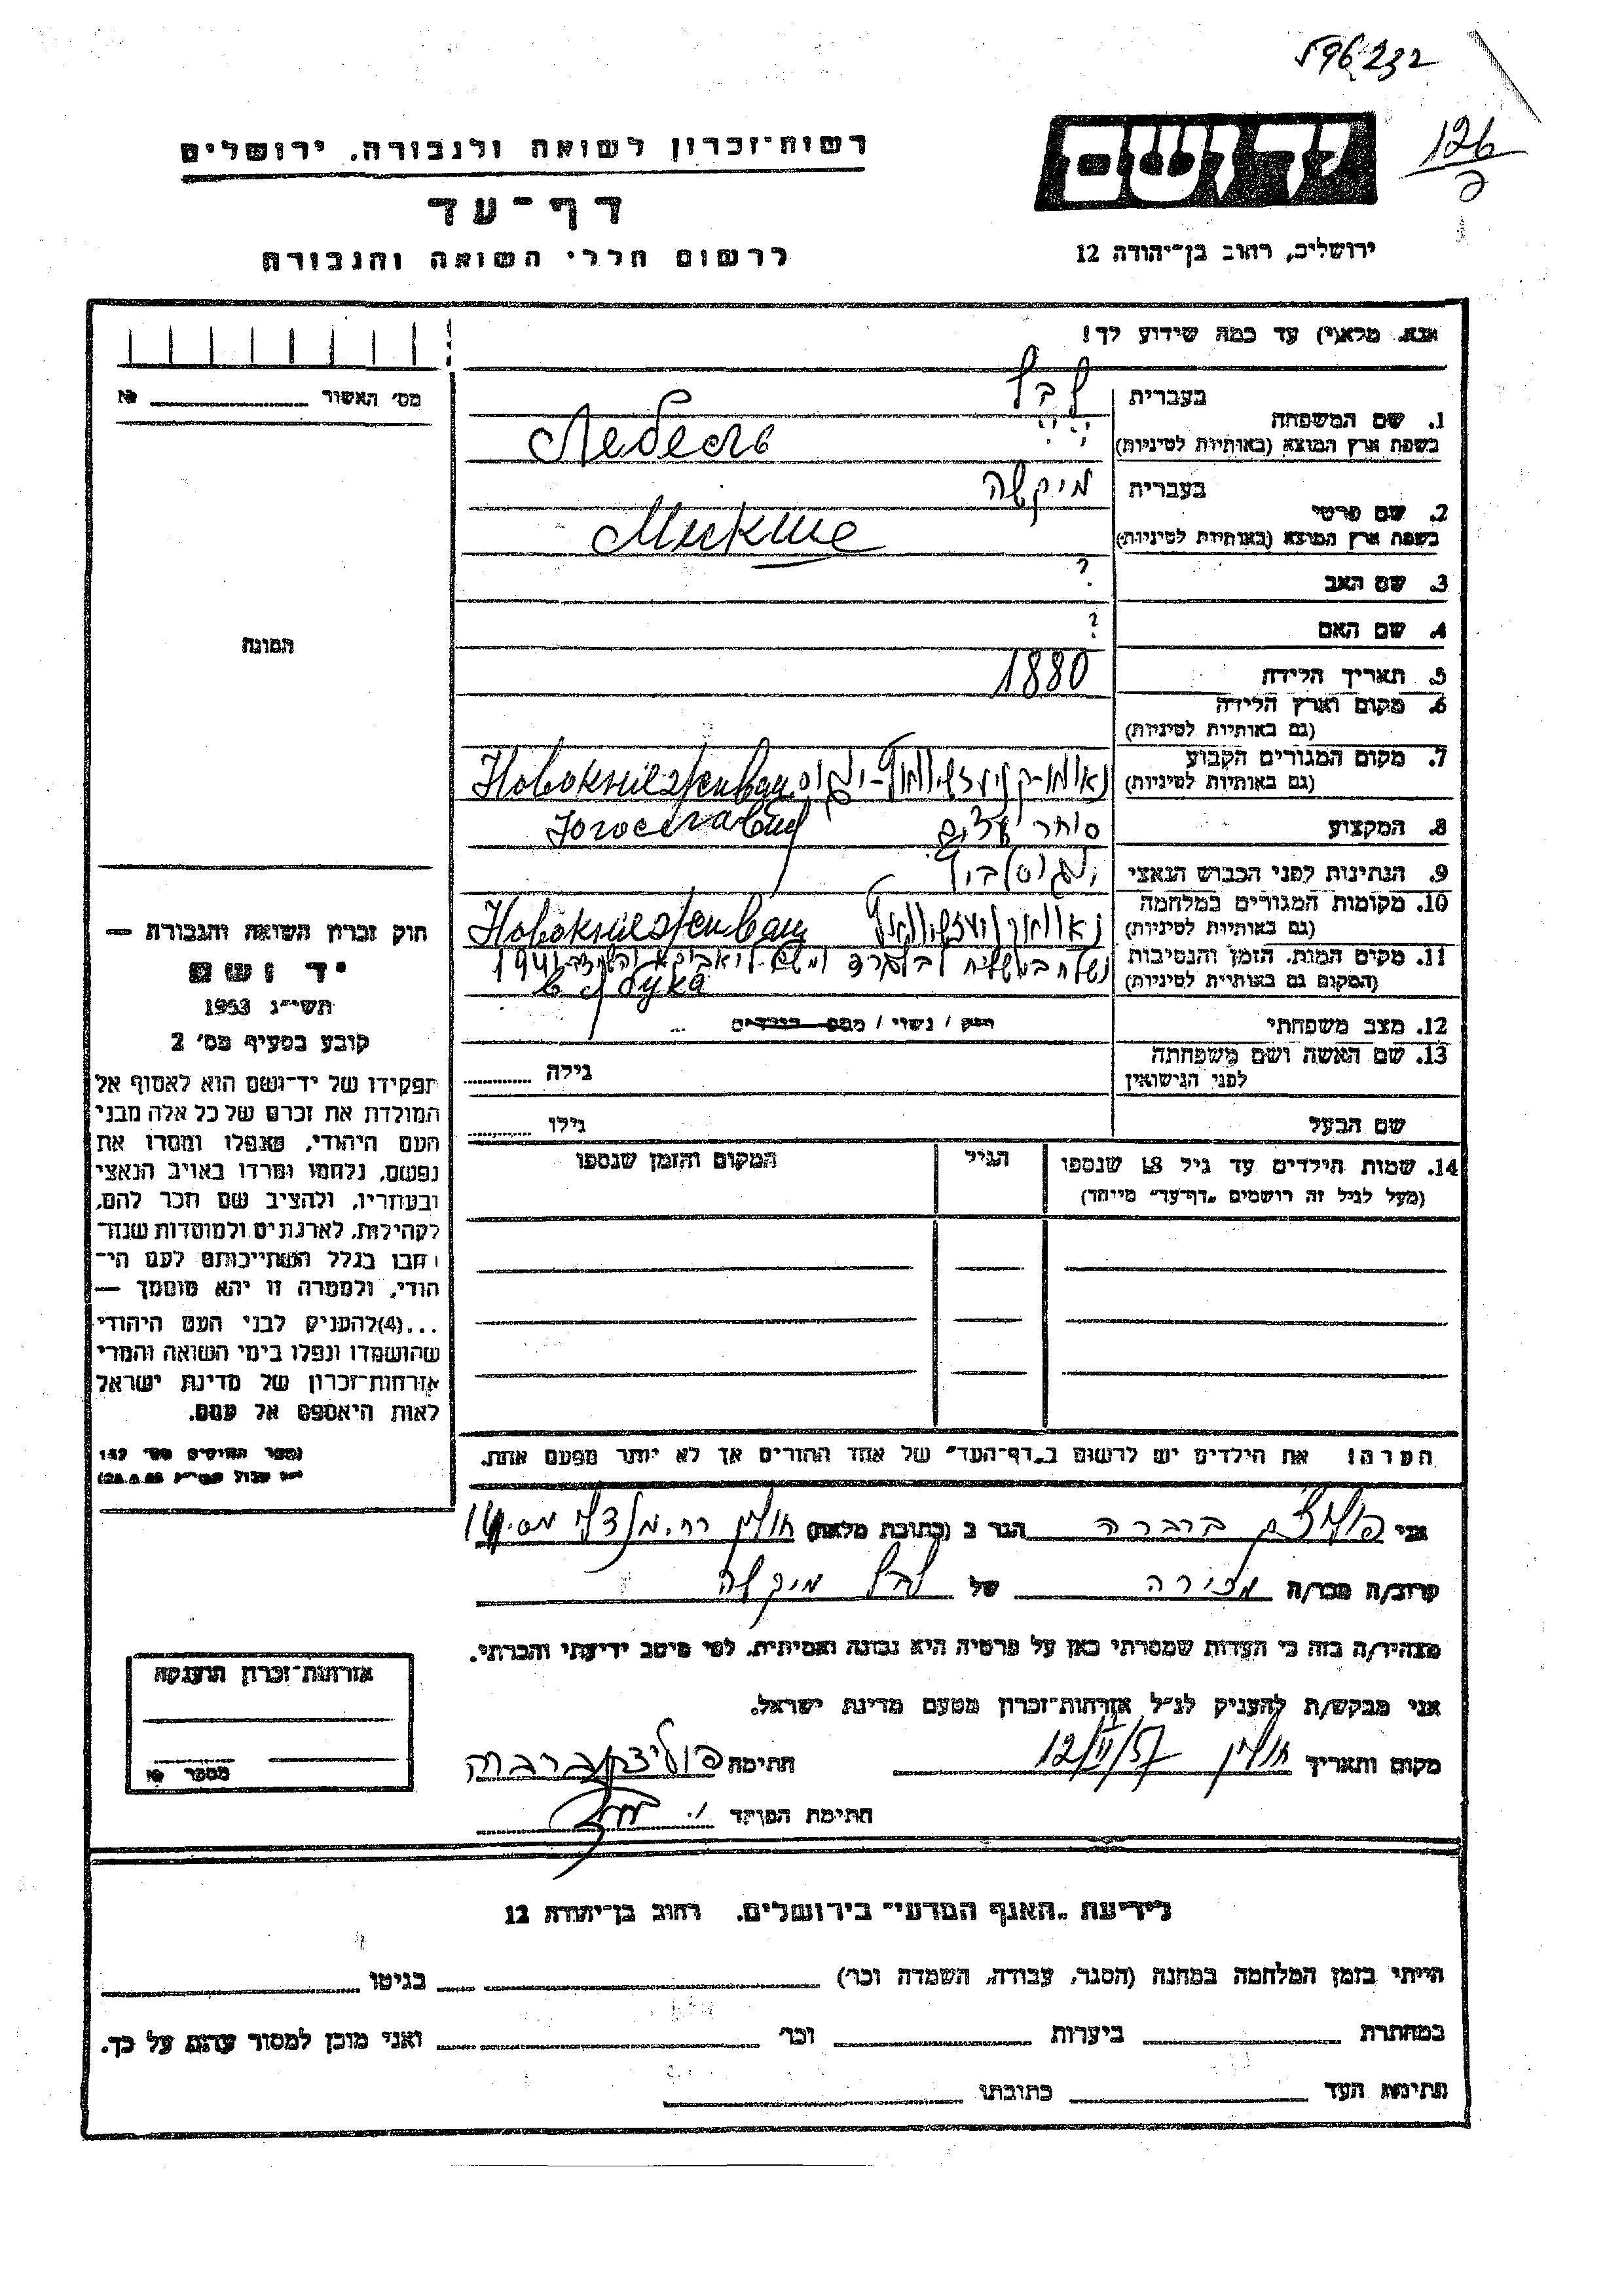 596232
126
רשות־זכרון לשואה ולגבורה, ירושלים
יד ושם
דף־עד
לרשום חללי השואה והגבורה
ירושלים, רחוב בן־יהודה 12
אנא, מלא(י) עד כמה שידוע לך!
מס׳ האשור №
1. שם המשפחה
בעברית לבל
בשפת ארץ המוצא (באותיות לטיניות)
Лебель
2. שם פרטי
בעברית מיקשה
בשפת ארץ המוצא (באותיות לטיניות)
Микше
3. שם האב ?
4. שם האם ?
התמונה
5. תאריך הלידה 1880
6. מקום וארץ הלידה
(גם באותיות לטיניות)
7. מקום המגורים הקבוע
(גם באותיות לטיניות)
8. המקצוע סוחר עצים
9. הנתינות לפני הכבוש הנאצי
10. מקומות המגורים במלחמה
(גם באותיות לטיניות)
11. מקום המות, הזמן והנסיבות
(המקום גם באותיות לטיניות)
1941
12. מצב משפחתי
רווק / נשוי / מספר הילדים ...
13. שם האשה ושם משפחתה
לפני הנישואין
גילה
שם הבעל
גילו
14. שמות הילדים עד גיל 18 שנספו
(מעל לגיל זה רושמים „דף־עד״ מיוחד)
הגיל
המקום והזמן שנספו
חוק זכרון השואה והגבורה —
יד ושם
תשי״ג 1953
קובע בסעיף מס׳ 2
תפקידו של יד־ושם הוא לאסוף אל
המולדת את זכרם של כל אלה מבני
העם היהודי, שנפלו ומסרו את
נפשם, נלחמו ומרדו באויב הנאצי
ובעוזריו, ולהציב שם וזכר להם,
לקהילות, לארגונים ולמוסדות שנח־
רבו בגלל השתייכותם לעם הי־
הודי, ולמטרה זו יהא מוסמך —
...(4) להעניק לבני העם היהודי
שהושמדו ונפלו בימי השואה והמרי
אזרחות־זכרון של מדינת ישראל
לאות היאספם אל עמם.
הערה! את הילדים יש לרשום ב„דף־העד״ של אחד ההורים אך לא יותר מפעם אחת.
אני ברברה הגר ב (כתובת מלאה) חולון רח.
קרוב/ה מכר/ה מכירה של לבל מיקשה
מצהיר/ה בזה כי העדות שמסרתי כאן על פרטיה היא נכונה ואמיתית, לפי מיטב ידיעתי והכרתי.
אני מבקש/ת להעניק לנ״ל אזרחות־זכרון מטעם מדינת ישראל.
מקום ותאריך חולון 12/II/57 חתימה
חתימת הפוקד
אזרחות־זכרון הוענקה
מספר №
לידיעת „האגף המדעי״ בירושלים, רחוב בן־יהודה 12
הייתי בזמן המלחמה במחנה (הסגר, עבודה, השמדה וכו׳) בגיטו
במחתרת ביערות וכו׳ ואני מוכן למסור עדות על כך.
חתימת העד כתובתו